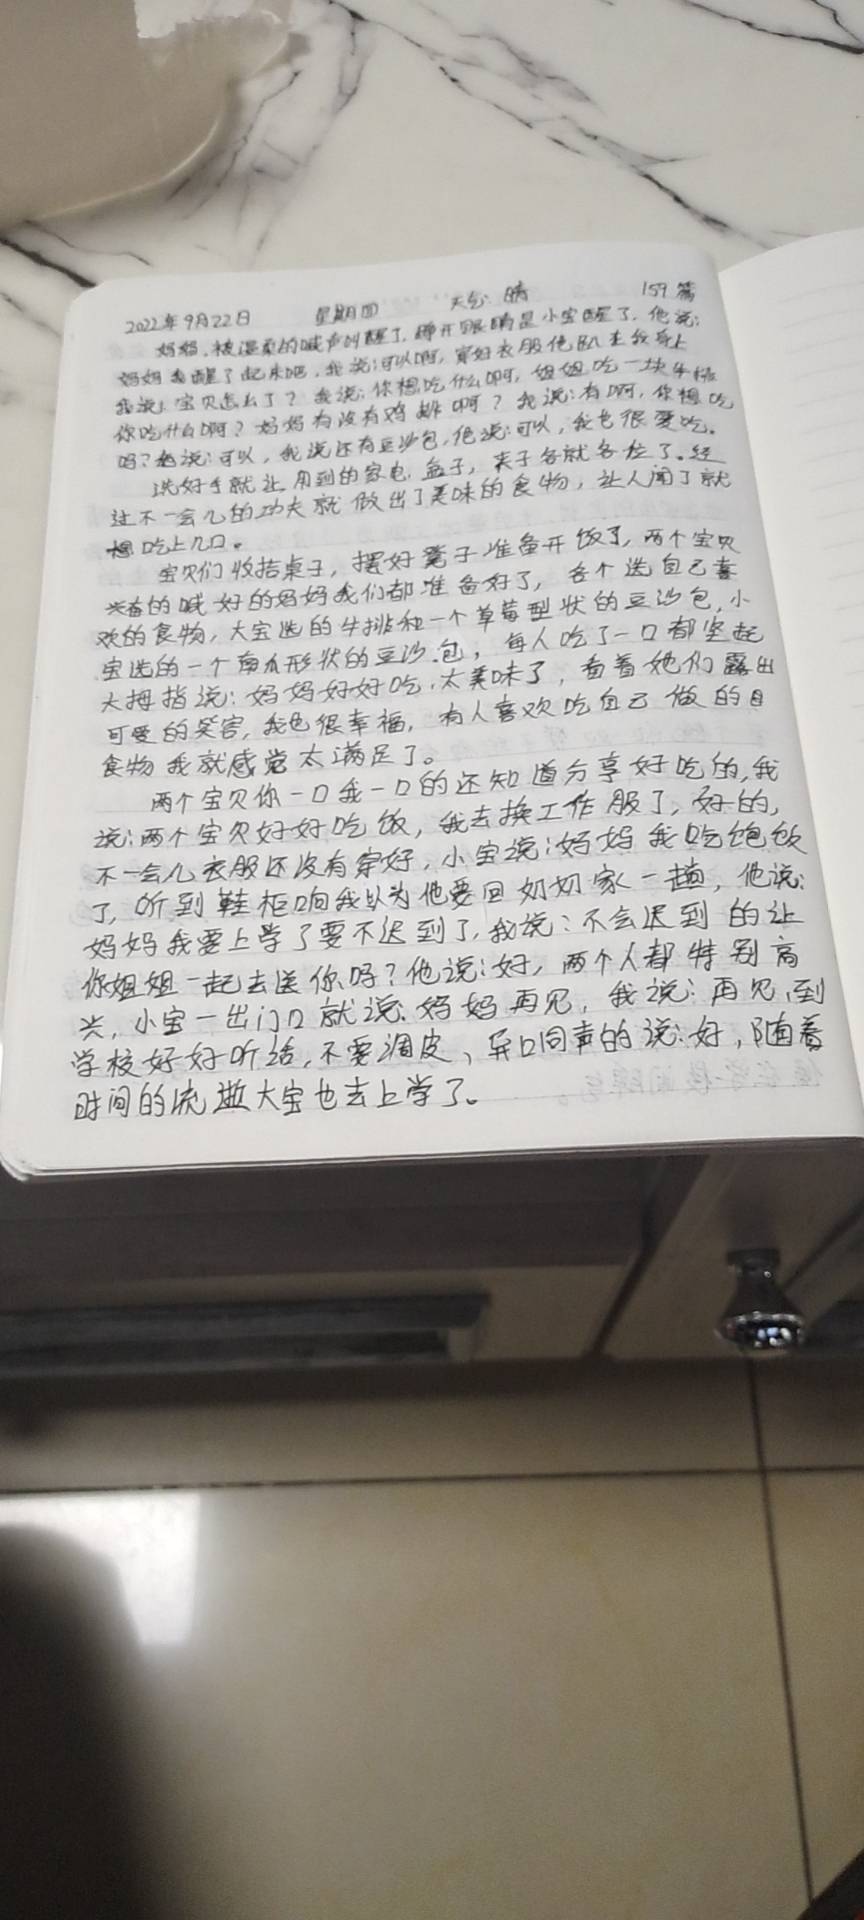 2022年9月22日 星期四 天气:晴 159篇
妈妈,被温柔的喊声叫醒了,睁开眼睛是小宝醒了,他说:
妈妈我醒了起来吧,我说:可以啊,穿好衣服他趴在我身上
我说:宝贝怎么了?我说:你想吃什么啊,姐姐吃一块牛排
你吃什么啊?妈妈有没有鸡排啊?我说:有啊,你想吃
吗?他说:可以,我说还有豆沙包,他说:可以,我也很爱吃。
洗好手就让用到的家电,盘子,夹子各就各位了。经
过不一会儿的功夫就做出了美味的食物,让人闻了就
想吃上几口。
宝贝们收拾桌子,摆好凳子准备开饭了,两个宝贝
兴奋的喊好的妈妈我们都准备好了,各个选自己喜
欢的食物,大宝选的牛排和一个草莓型状的豆沙包,小
宝选的一个南瓜形状的豆沙包,每人吃了一口都坚起
大拇指说:妈妈好好吃,太美味了,看着她们露出
可爱的笑容,我也很幸福,有人喜欢吃自己做的
食物我就感觉太满足了。
两个宝贝你一口我一口的还知道分享好吃的,我
说:两个宝贝好好吃饭,我去换工作服了,好的,
不一会儿衣服还没有穿好,小宝说:妈妈我吃饱饭
了,听到鞋柜响我以为他要回奶奶家一趟,他说:
妈妈我要上学了要不迟到了,我说:不会迟到的让
你姐姐一起去送你吗?他说:好,两个人都特别高
兴,小宝一出门口就说:妈妈再见,我说:再见,到
学校好好听话,不要调皮,异口同声的说:好,随着
时间的流逝大宝也去上学了。